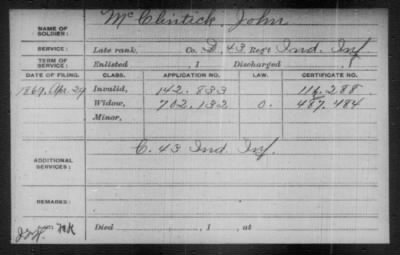 NAME OF SOLDIER: McClintick, John
SERVICE: Late rank, Co. D, 43 Reg't Ind. Inf.
TERM OF SERVICE: Enlisted , 1 Discharged , 1
DATE OF FILING. CLASS. APPLICATION NO. LAW. CERTIFICATE NO.
1869, Apr. 29 Invalid, 142.833 116.288
Widow, 702.132 O. 487.484
Minor,
ADDITIONAL SERVICES: C. 43 Ind. Inf.
REMARKS:
Died , 1 , at